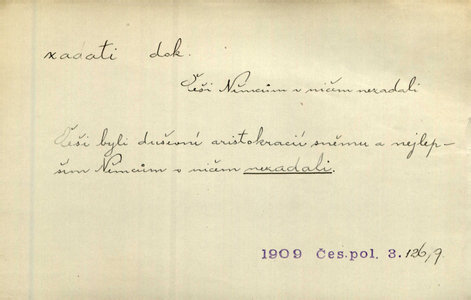 zadati dok.
Češi Němcům v ničem nezadali
Češi byli duševní aristokracií sněmu a nejlep-
ším Němcům v ničem nezadali.
1909 Čes.pol. 3.126,9.